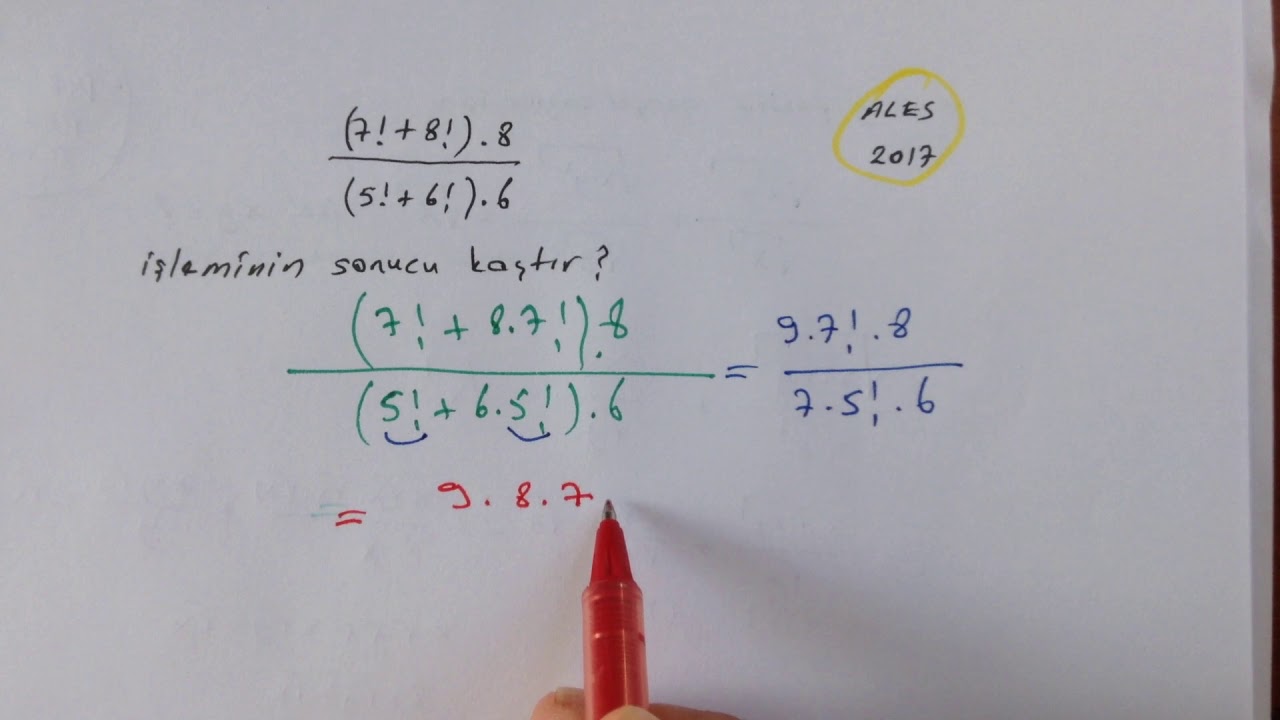 (7!+8!).8
(5!+6!).6
ALES
2017
işleminin sonucu kaçtır?
(7!+8.7!).8
(5!+6.5!).6
=
9.7!.8
7.5!.6
= 9.8.7